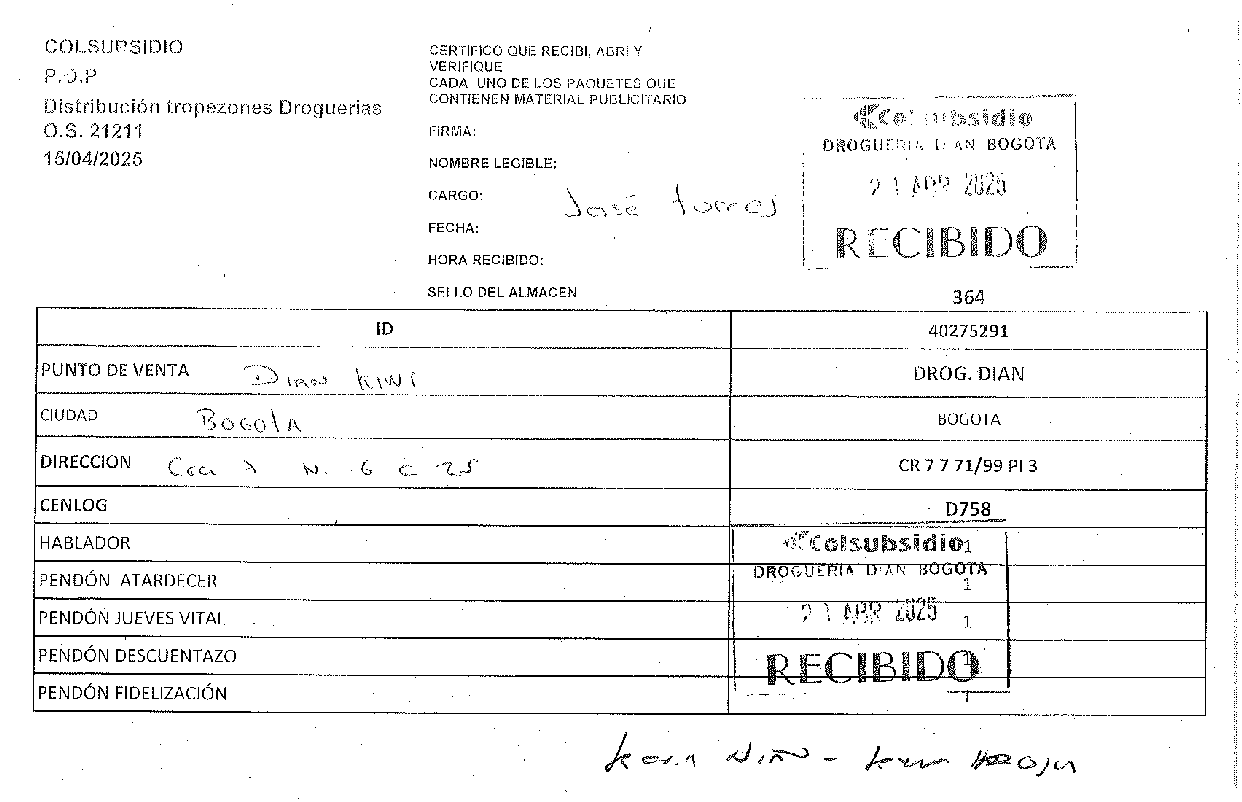 COLSUBSIDIO
P.O.P
Distribución tropezones Droguerias
O.S. 21211
15/04/2025
CERTIFICO QUE RECIBI, ABRI Y
VERIFIQUE
CADA UNO DE LOS PAQUETES QUE
CONTIENEN MATERIAL PUBLICITARIO
FIRMA:
NOMBRE LEGIBLE:
CARGO:
José torres
FECHA:
HORA RECIBIDO:
SELLO DEL ALMACEN
Colsubsidio
DROGUERIA DIAN BOGOTA
21 ABR 2025
RECIBIDO
364
ID 40275291
PUNTO DE VENTA Dian kiwi DROG. DIAN
CIUDAD Bogota BOGOTA
DIRECCION N. 6 C 25 CR 7 7 71/99 PI 3
CENLOG D758
HABLADOR 1
PENDÓN ATARDECER 1
PENDÓN JUEVES VITAL 1
PENDÓN DESCUENTAZO 1
PENDÓN FIDELIZACIÓN 1
Colsubsidio
DROGUERIA DIAN BOGOTA
21 ABR 2025
RECIBIDO